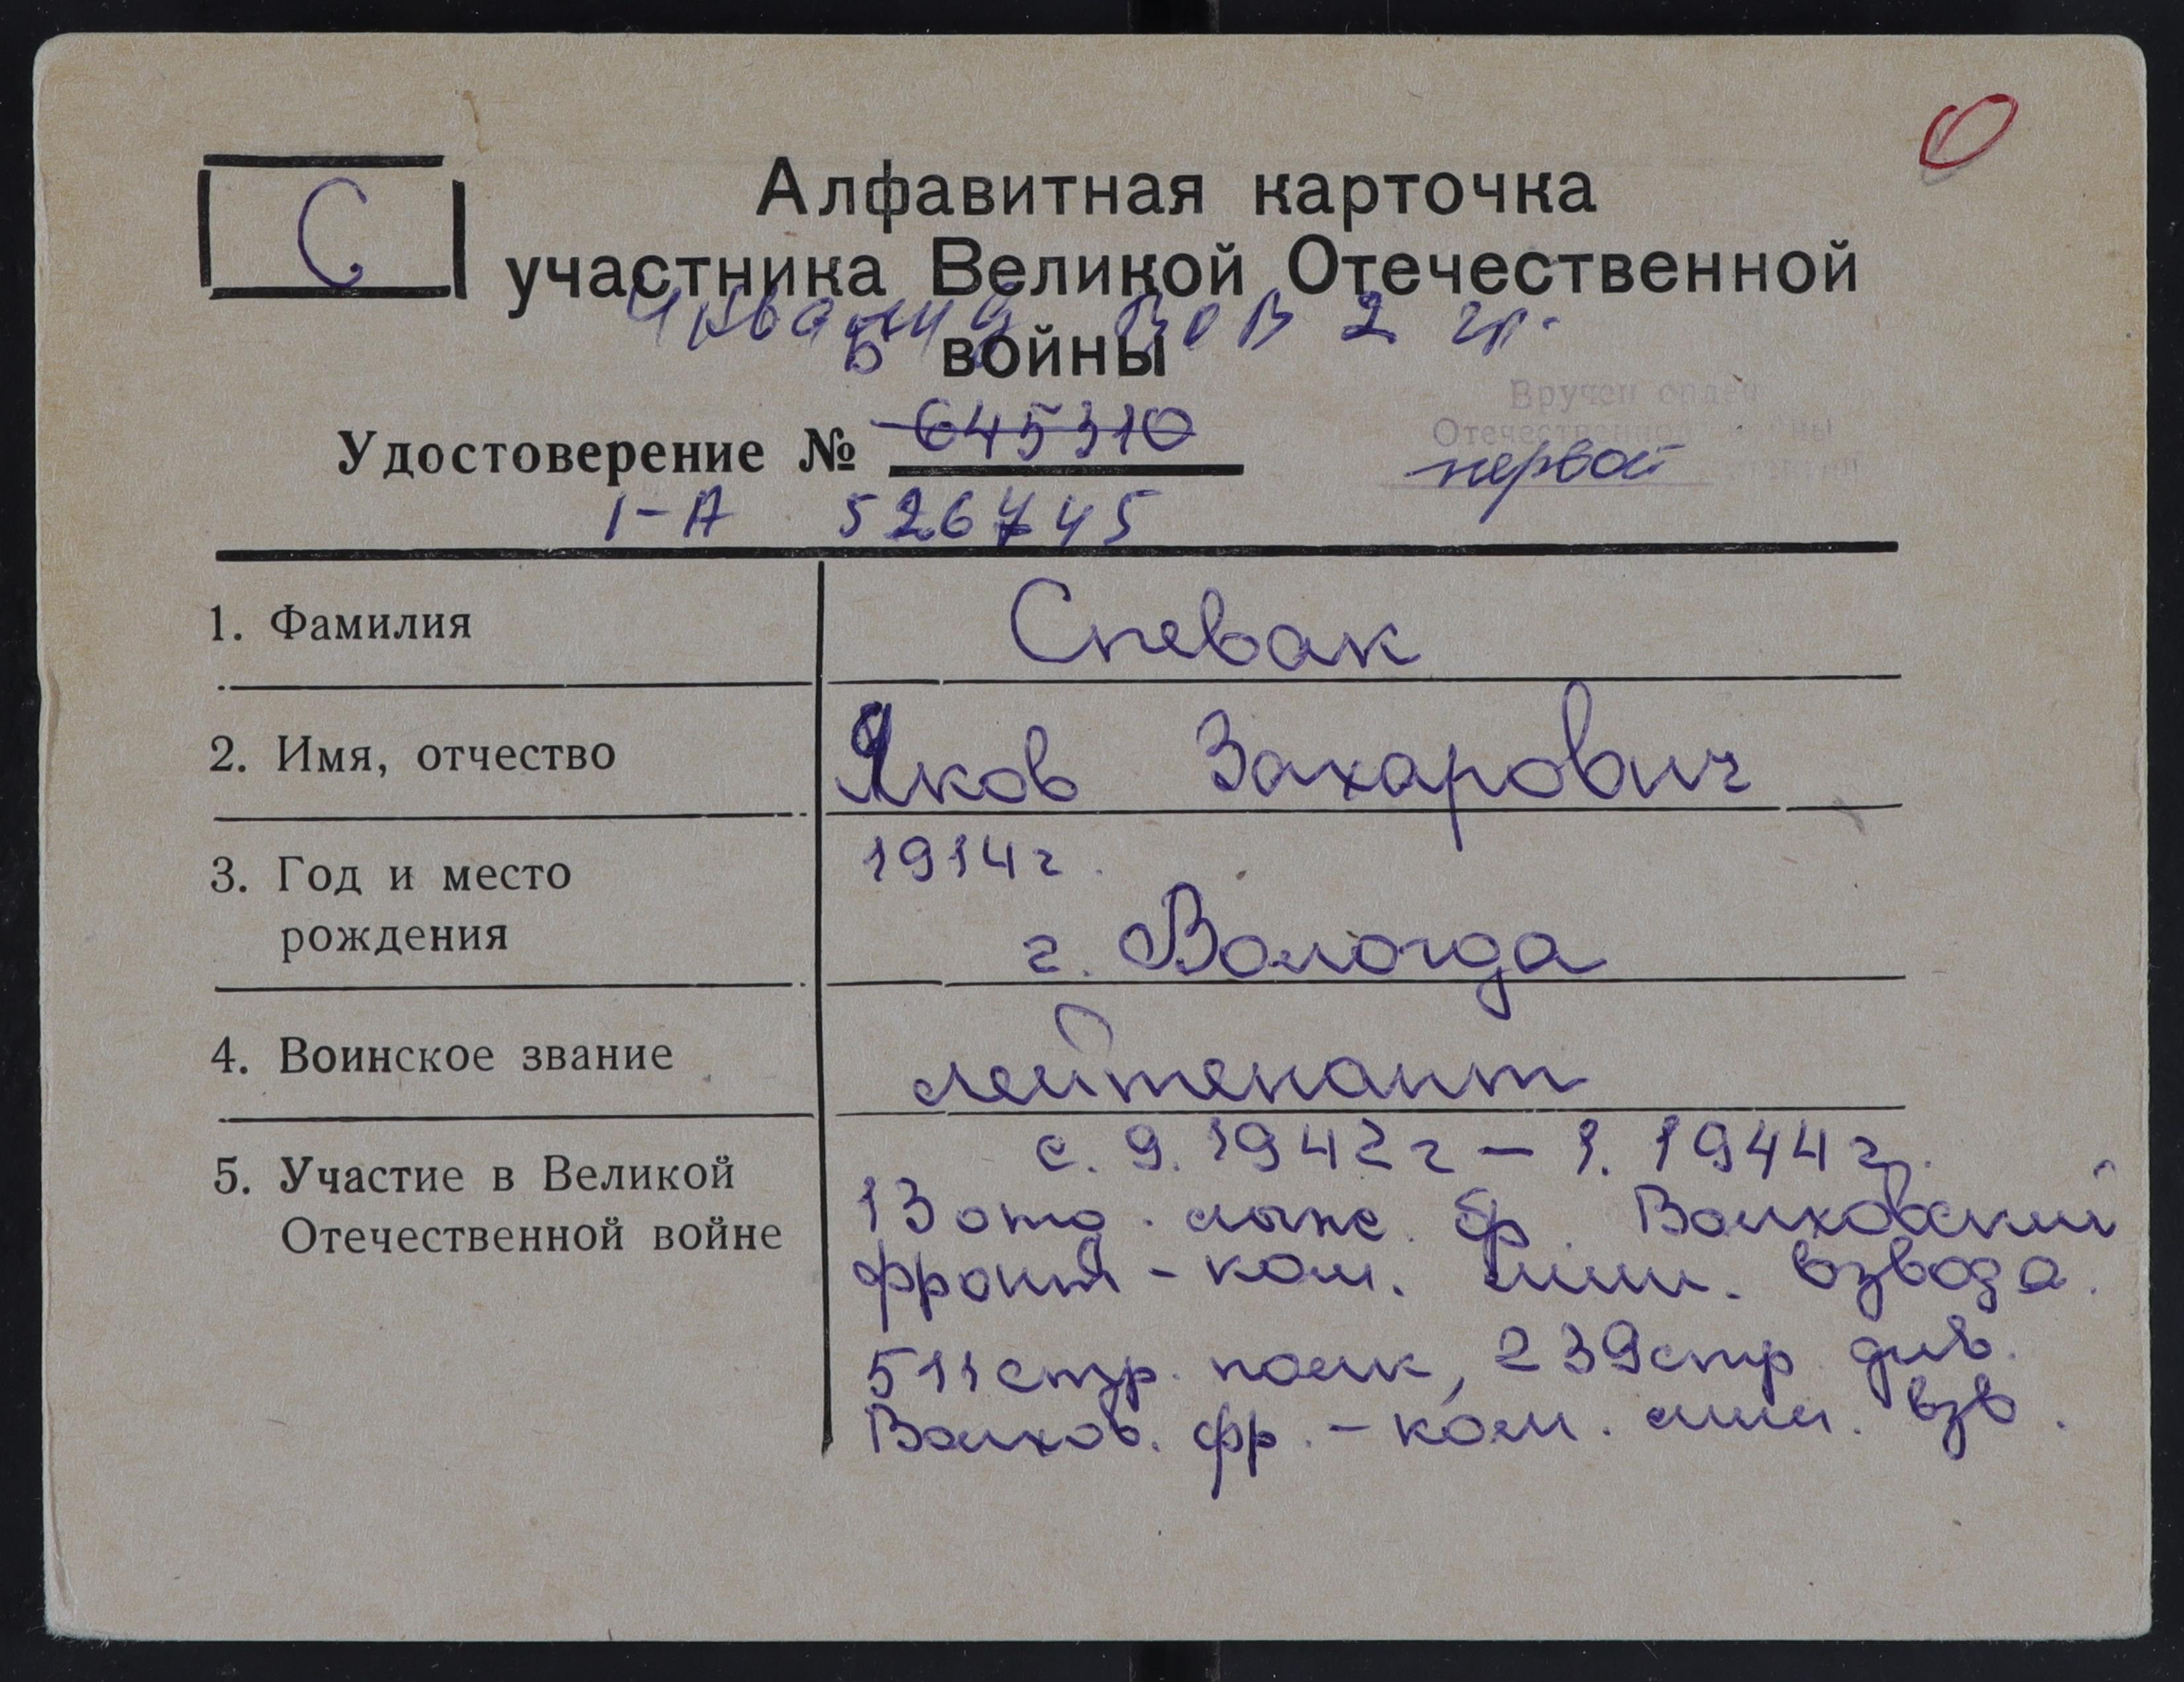 С
Алфавитная карточка
участника Великой Отечественной
войны
Инвалид ВОВ 2 гр.
Удостоверение № 645310
1-А 526745
Вручен орден
Отечественной войны
первой
1. Фамилия Спевак
2. Имя, отчество Яков Захарович
3. Год и место 1914г.
рождения г. Вологда
4. Воинское звание лейтенант
5. Участие в Великой с. 9. 1942г – 1. 1944г.
Отечественной войне 13 отд. лыжн. бр. Волховский
фронт - ком. мин. взвода.
511 стр. полк, 239 стр. див.
Волхов. фр. - ком. мин. взв.